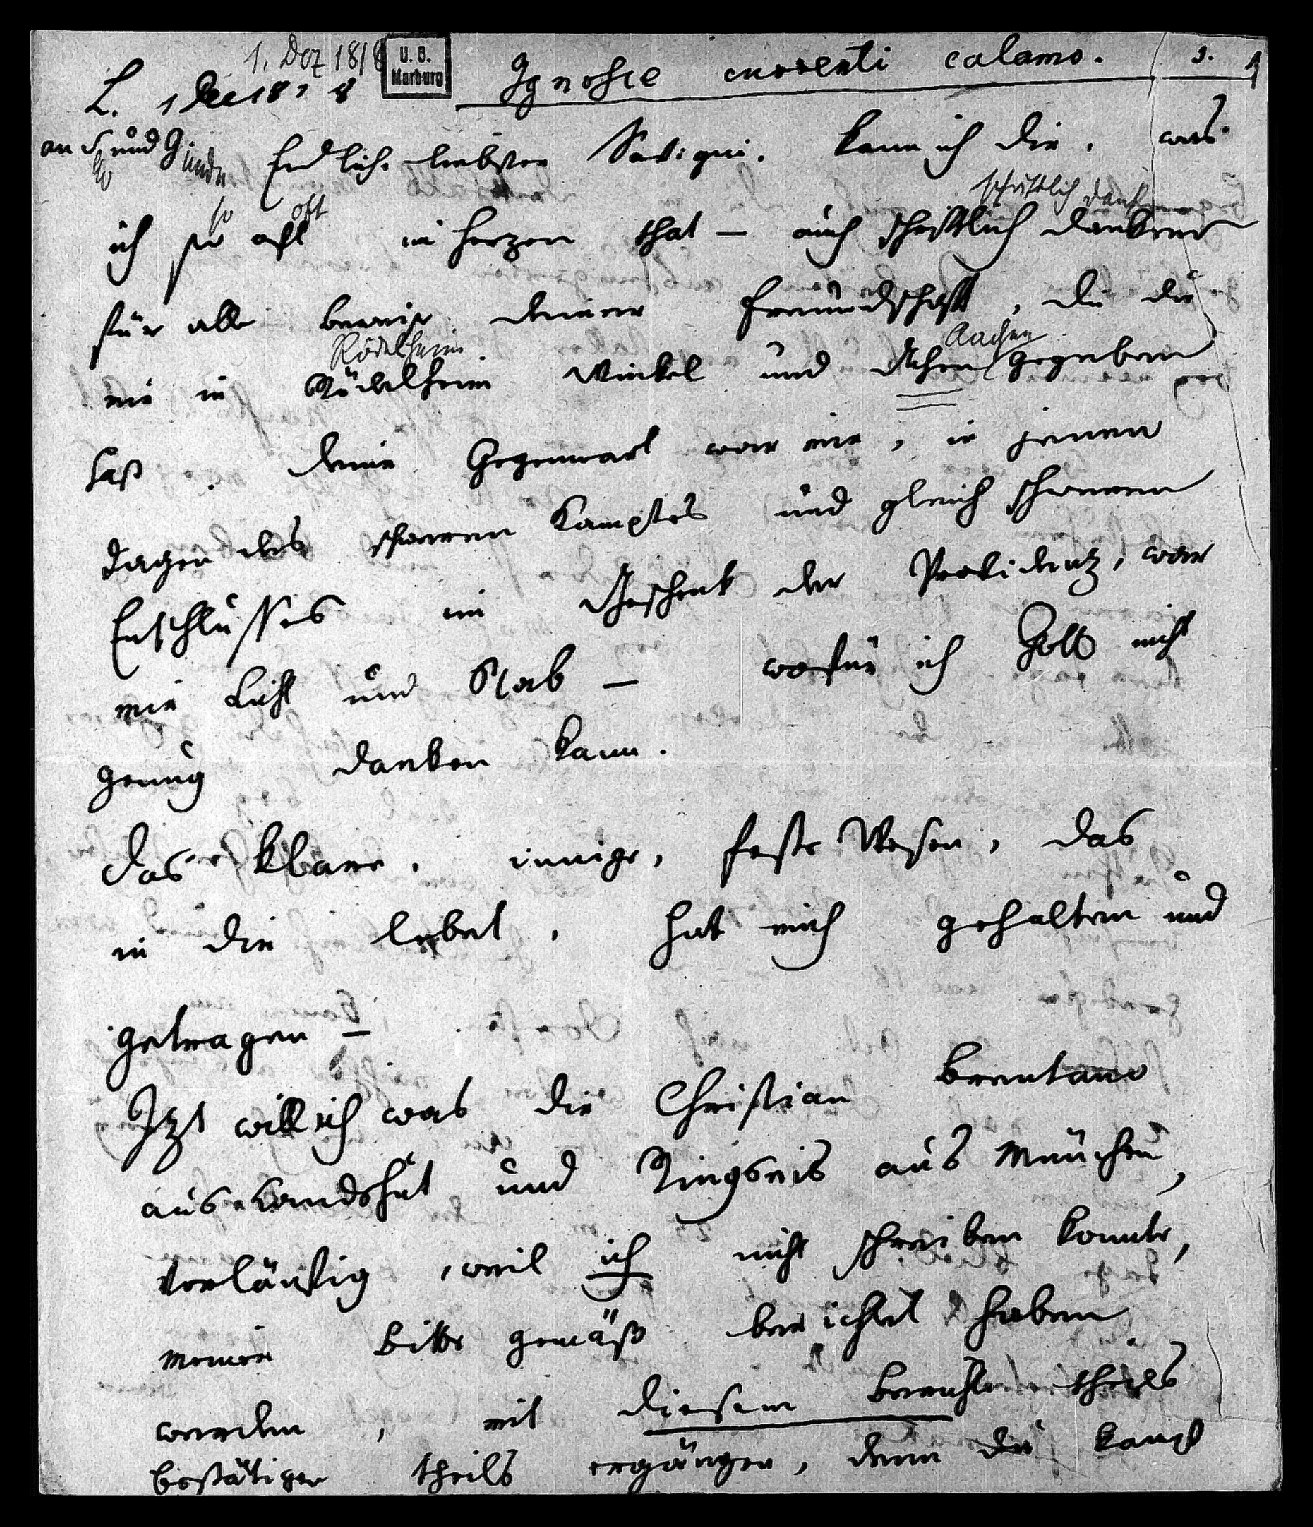 1. Dez 1818
U. B.
Marburg
Ignosce currenti calamo. 1.
L. 1 Dec 1818
an S und Gunda
Endlich liebster Savigni. kann ich dir, was
so oft schriftlich danken
ich so oft im Herzen that — auch schriftlich danken
für alle beweise deiner Freundschaft, die du
Rödelheim Aachen
mir in Rödelheim Winkel und Achen gegeben
hast. deine Gegenwart war mir, in jenen
Tagen des schweren Kampfes und gleich schweren
Entschlusses ein Geschenk der Providenz, war
mir Licht und Stab — wofür ich Gott nicht
genug danken kann.
Das Klare, innige, feste Wesen, das
in dir lebet, hat mich gehalten und
getragen —
Izt will ich was dir Christian Brentano
aus Landshut und Ringseis aus München,
vorläufig, weil ich nicht schreiben konnte,
meiner bitte gemäß berichtet haben
werden, mit diesem berichte theils
bestätigen theils ergänzen, denn du kanst